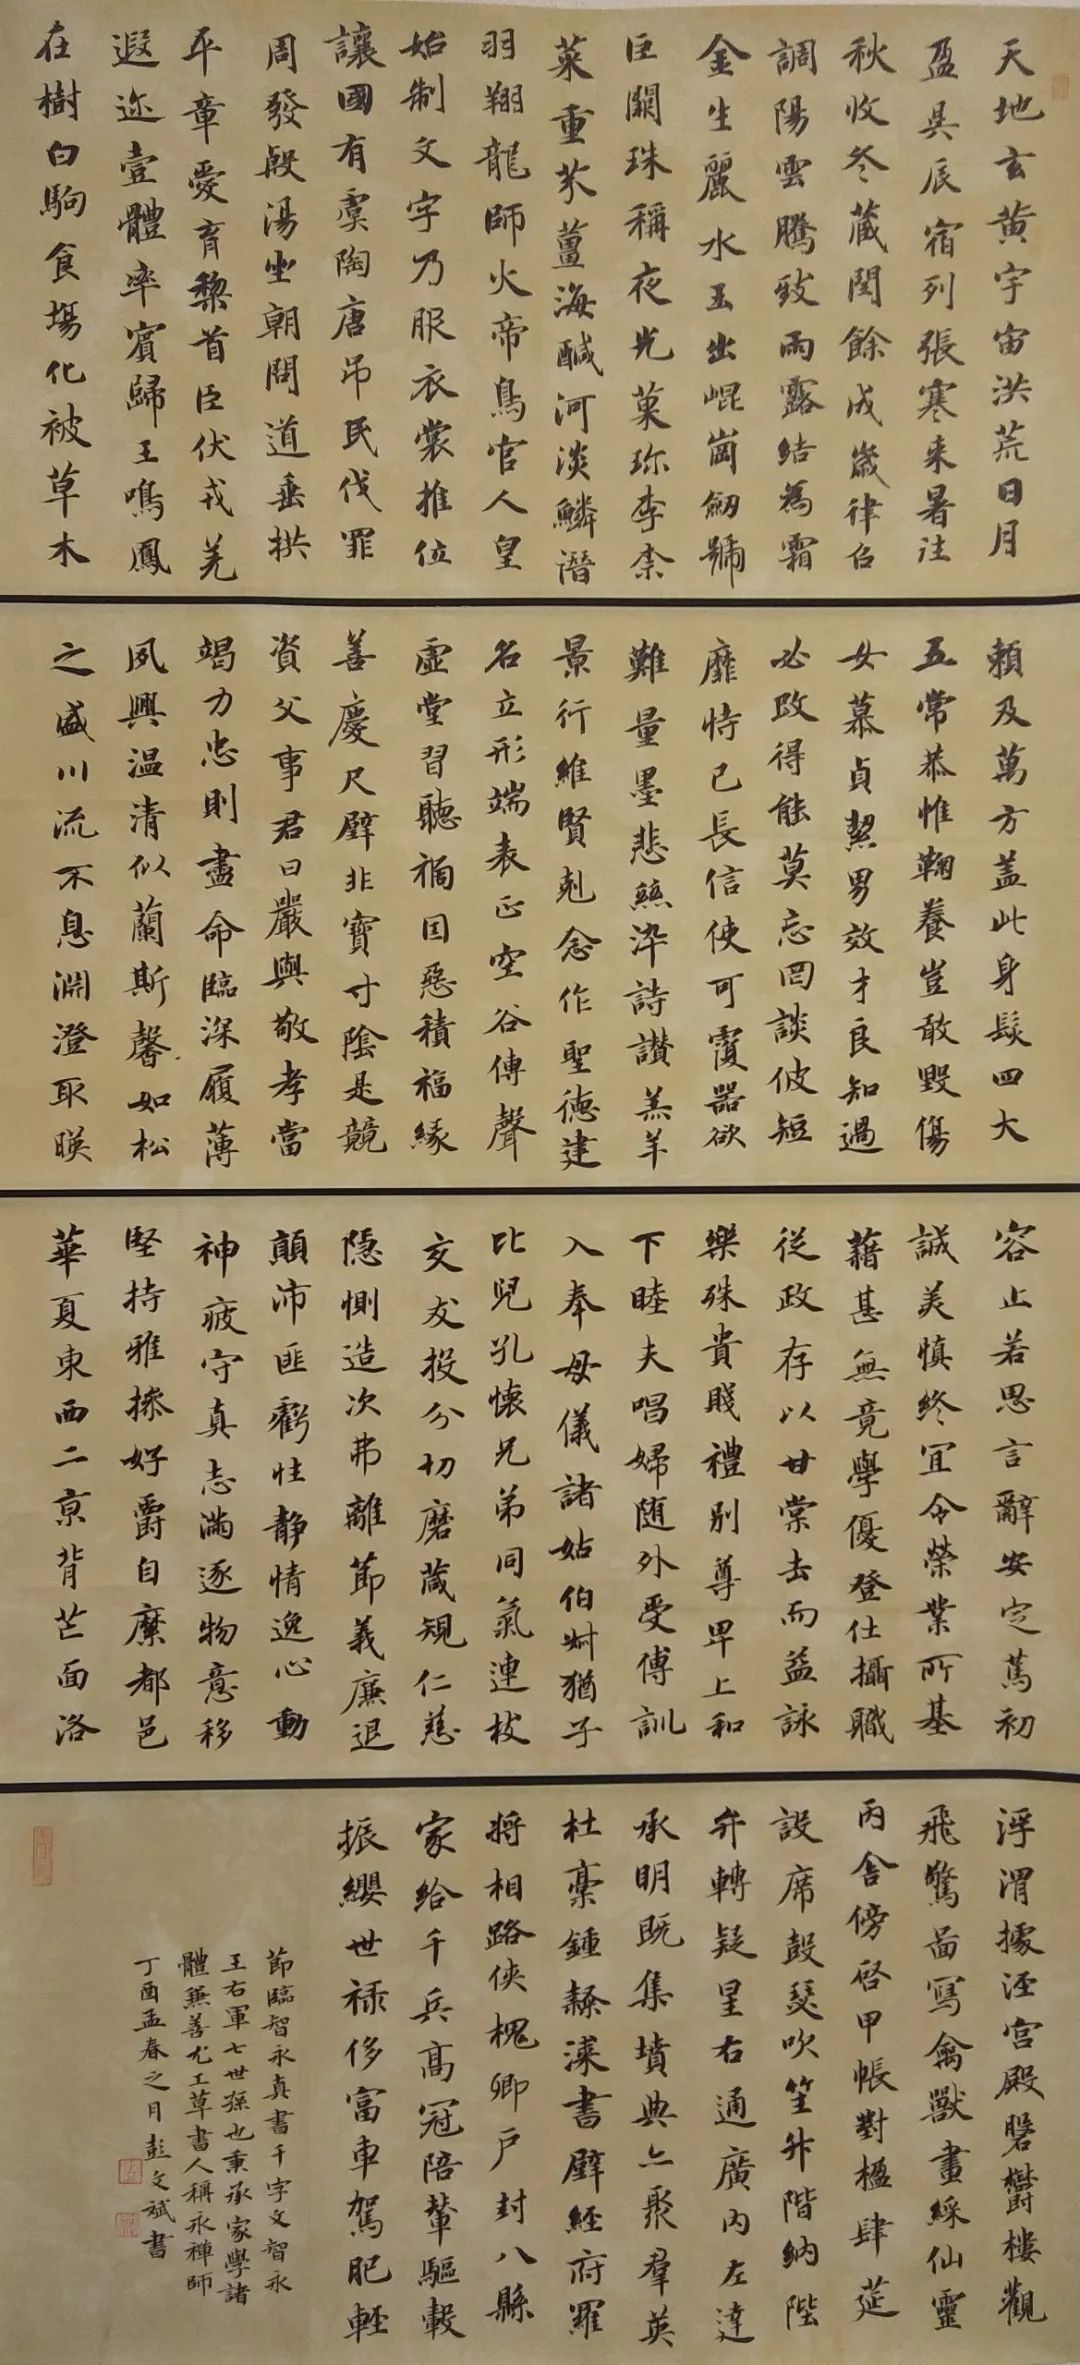 天地玄黄宇宙洪荒日月
盈昃辰宿列張寒来暑往
秋收冬蔵閏餘成歲律召
調陽雲騰致雨露結為霜
金生麗水玉出崐崗劒號
巨闕珠稱夜光菓珎李柰
菜重芥薑海醎河淡鱗潛
羽翔龍師火帝鳥官人皇
始制文字乃服衣裳推位
讓國有虞陶唐吊民伐罪
周發殷湯坐朝問道垂拱
平章愛育黎首臣伏戎羌
遐迩壹體率賓歸王鳴鳳
在樹白駒食場化被草木
賴及萬方盖此身髮四大
五常恭惟鞠養豈敢毀傷
女慕貞絜男效才良知過
必改得能莫忘罔談彼短
靡恃已長信使可覆器欲
難量墨悲絲染詩讃羔羊
景行維賢剋念作聖德建
名立形端表正空谷傳聲
虛堂習聽禍因惡積福緣
善慶尺璧非寶寸陰是競
資父事君曰嚴與敬孝當
竭力忠則盡命臨深履薄
夙興温凊似蘭斯馨如松
之盛川流不息淵澄取暎
容止若思言辭安定篤初
誠美慎終宜令榮業所基
藉甚無竟學優登仕攝職
從政存以甘棠去而益詠
樂殊貴賤禮別尊卑上和
下睦夫唱婦随外受傅訓
入奉母儀諸姑伯叔猶子
比兒孔懷兄弟同氣連枝
交友投分切磨蔵規仁慈
隠惻造次弗離節義廉退
顛沛匪虧性静情逸心動
神疲守真志滿逐物意移
堅持雅操好爵自縻都邑
華夏東西二京背芒面洛
浮渭據涇宫殿磐欝樓觀
飛驚啚寫禽獸畫綵仙靈
丙舎傍啓甲帳對楹肆莚
設席鼓瑟吹笙升階納陛
弁轉疑星右通廣内左達
承明既集墳典亦聚羣英
杜稾鍾隸漆書壁經府羅
將相路俠槐卿戸封八縣
家給千兵高冠陪輦驅轂
振纓世禄侈富車駕肥輕
節臨智永真書千字文智永
王右軍七世孫也秉承家學諸
體兼善尤工草書人稱永禅師
丁酉孟春之月彭文斌書